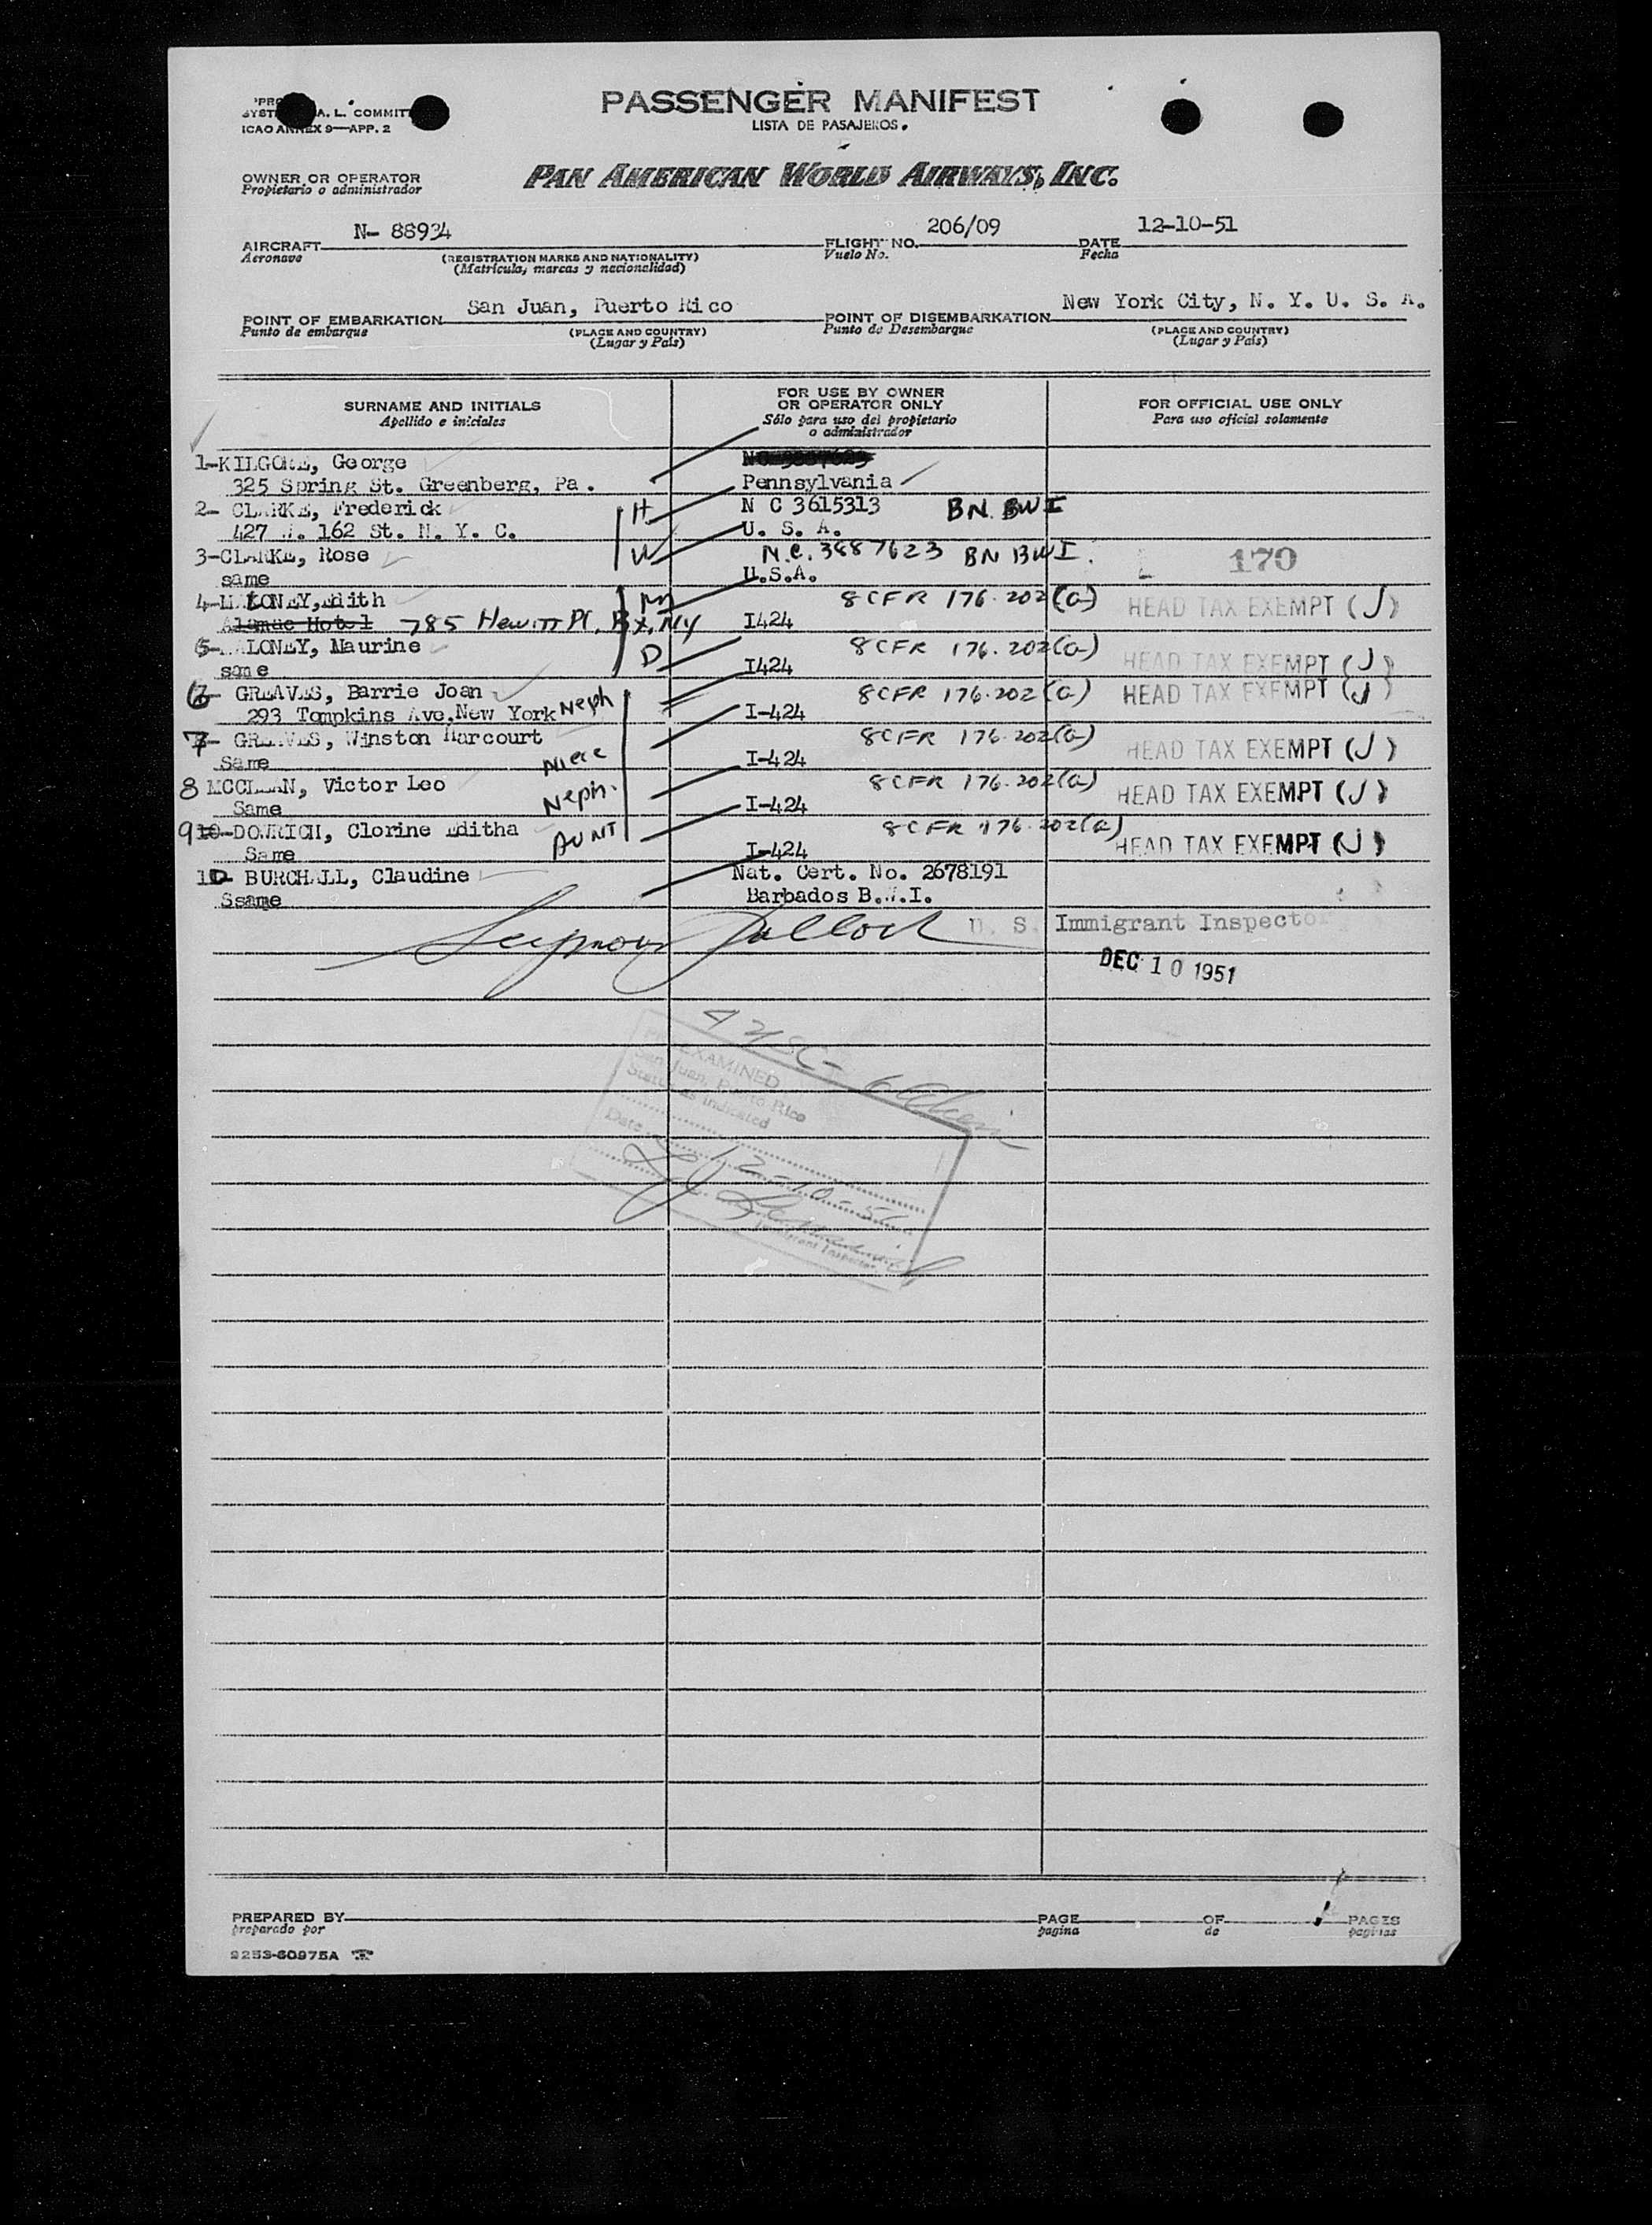 ICAO ANNEX 9—APP. 2
PASSENGER MANIFEST
LISTA DE PASAJEROS.
OWNER OR OPERATOR
Propietario o administrador
PAN AMERICAN WORLD AIRWAYS, INC.
AIRCRAFT N- 88934 FLIGHT NO. 206/09 DATE 12-10-51
Aeronave (REGISTRATION MARKS AND NATIONALITY) Vuelo No. Fecha
(Matrícula, marcas y nacionalidad)
POINT OF EMBARKATION San Juan, Puerto Rico POINT OF DISEMBARKATION New York City, N. Y. U. S. A.
Punto de embarque (PLACE AND COUNTRY) Punto de Desembarque (PLACE AND COUNTRY)
(Lugar y País) (Lugar y País)
SURNAME AND INITIALS FOR USE BY OWNER OR OPERATOR ONLY FOR OFFICIAL USE ONLY
Apellido e iniciales Sólo para uso del propietario o administrador Para uso oficial solamente
1-KILGORE, George
325 Spring St. Greenberg, Pa. Pennsylvania
2- CLARKE, Frederick H N C 3615313 BN. BWI
427 W. 162 St. N. Y. C. U. S. A.
3-CLARKE, Rose W N.C. 3887623 BN BWI.
same U.S.A. 170
4-MALONEY, Edith M 8 CFR 176.202(a) HEAD TAX EXEMPT (J)
Alamac Hotel 785 Hewitt Pl. Bx, NY I424
5-MALONEY, Maurine D 8 CFR 176.202(a) HEAD TAX EXEMPT (J)
same I424
6- GREAVES, Barrie Joan Neph 8 CFR 176.202(a) HEAD TAX EXEMPT (J)
293 Tompkins Ave. New York I-424
7- GREAVES, Winston Harcourt 8 CFR 176.202(a) HEAD TAX EXEMPT (J)
Same Niece I-424
8 MCCLEAN, Victor Leo Neph. 8 CFR 176.202(a) HEAD TAX EXEMPT (J)
Same I-424
9 10-DOWRICH, Clorine Editha AUNT 8 CFR 176.202(a) HEAD TAX EXEMPT (J)
Same I-424
10- BURCHALL, Claudine Nat. Cert. No. 2678191
Ssame Barbados B.W.I.
U. S. Immigrant Inspector
DEC 10 1951
EXAMINED
San Juan, Puerto Rico
Status as indicated
Date 12-10-51
Immigrant Inspector
PREPARED BY PAGE OF PAGES
preparado por pagina de paginas
9253-60975A